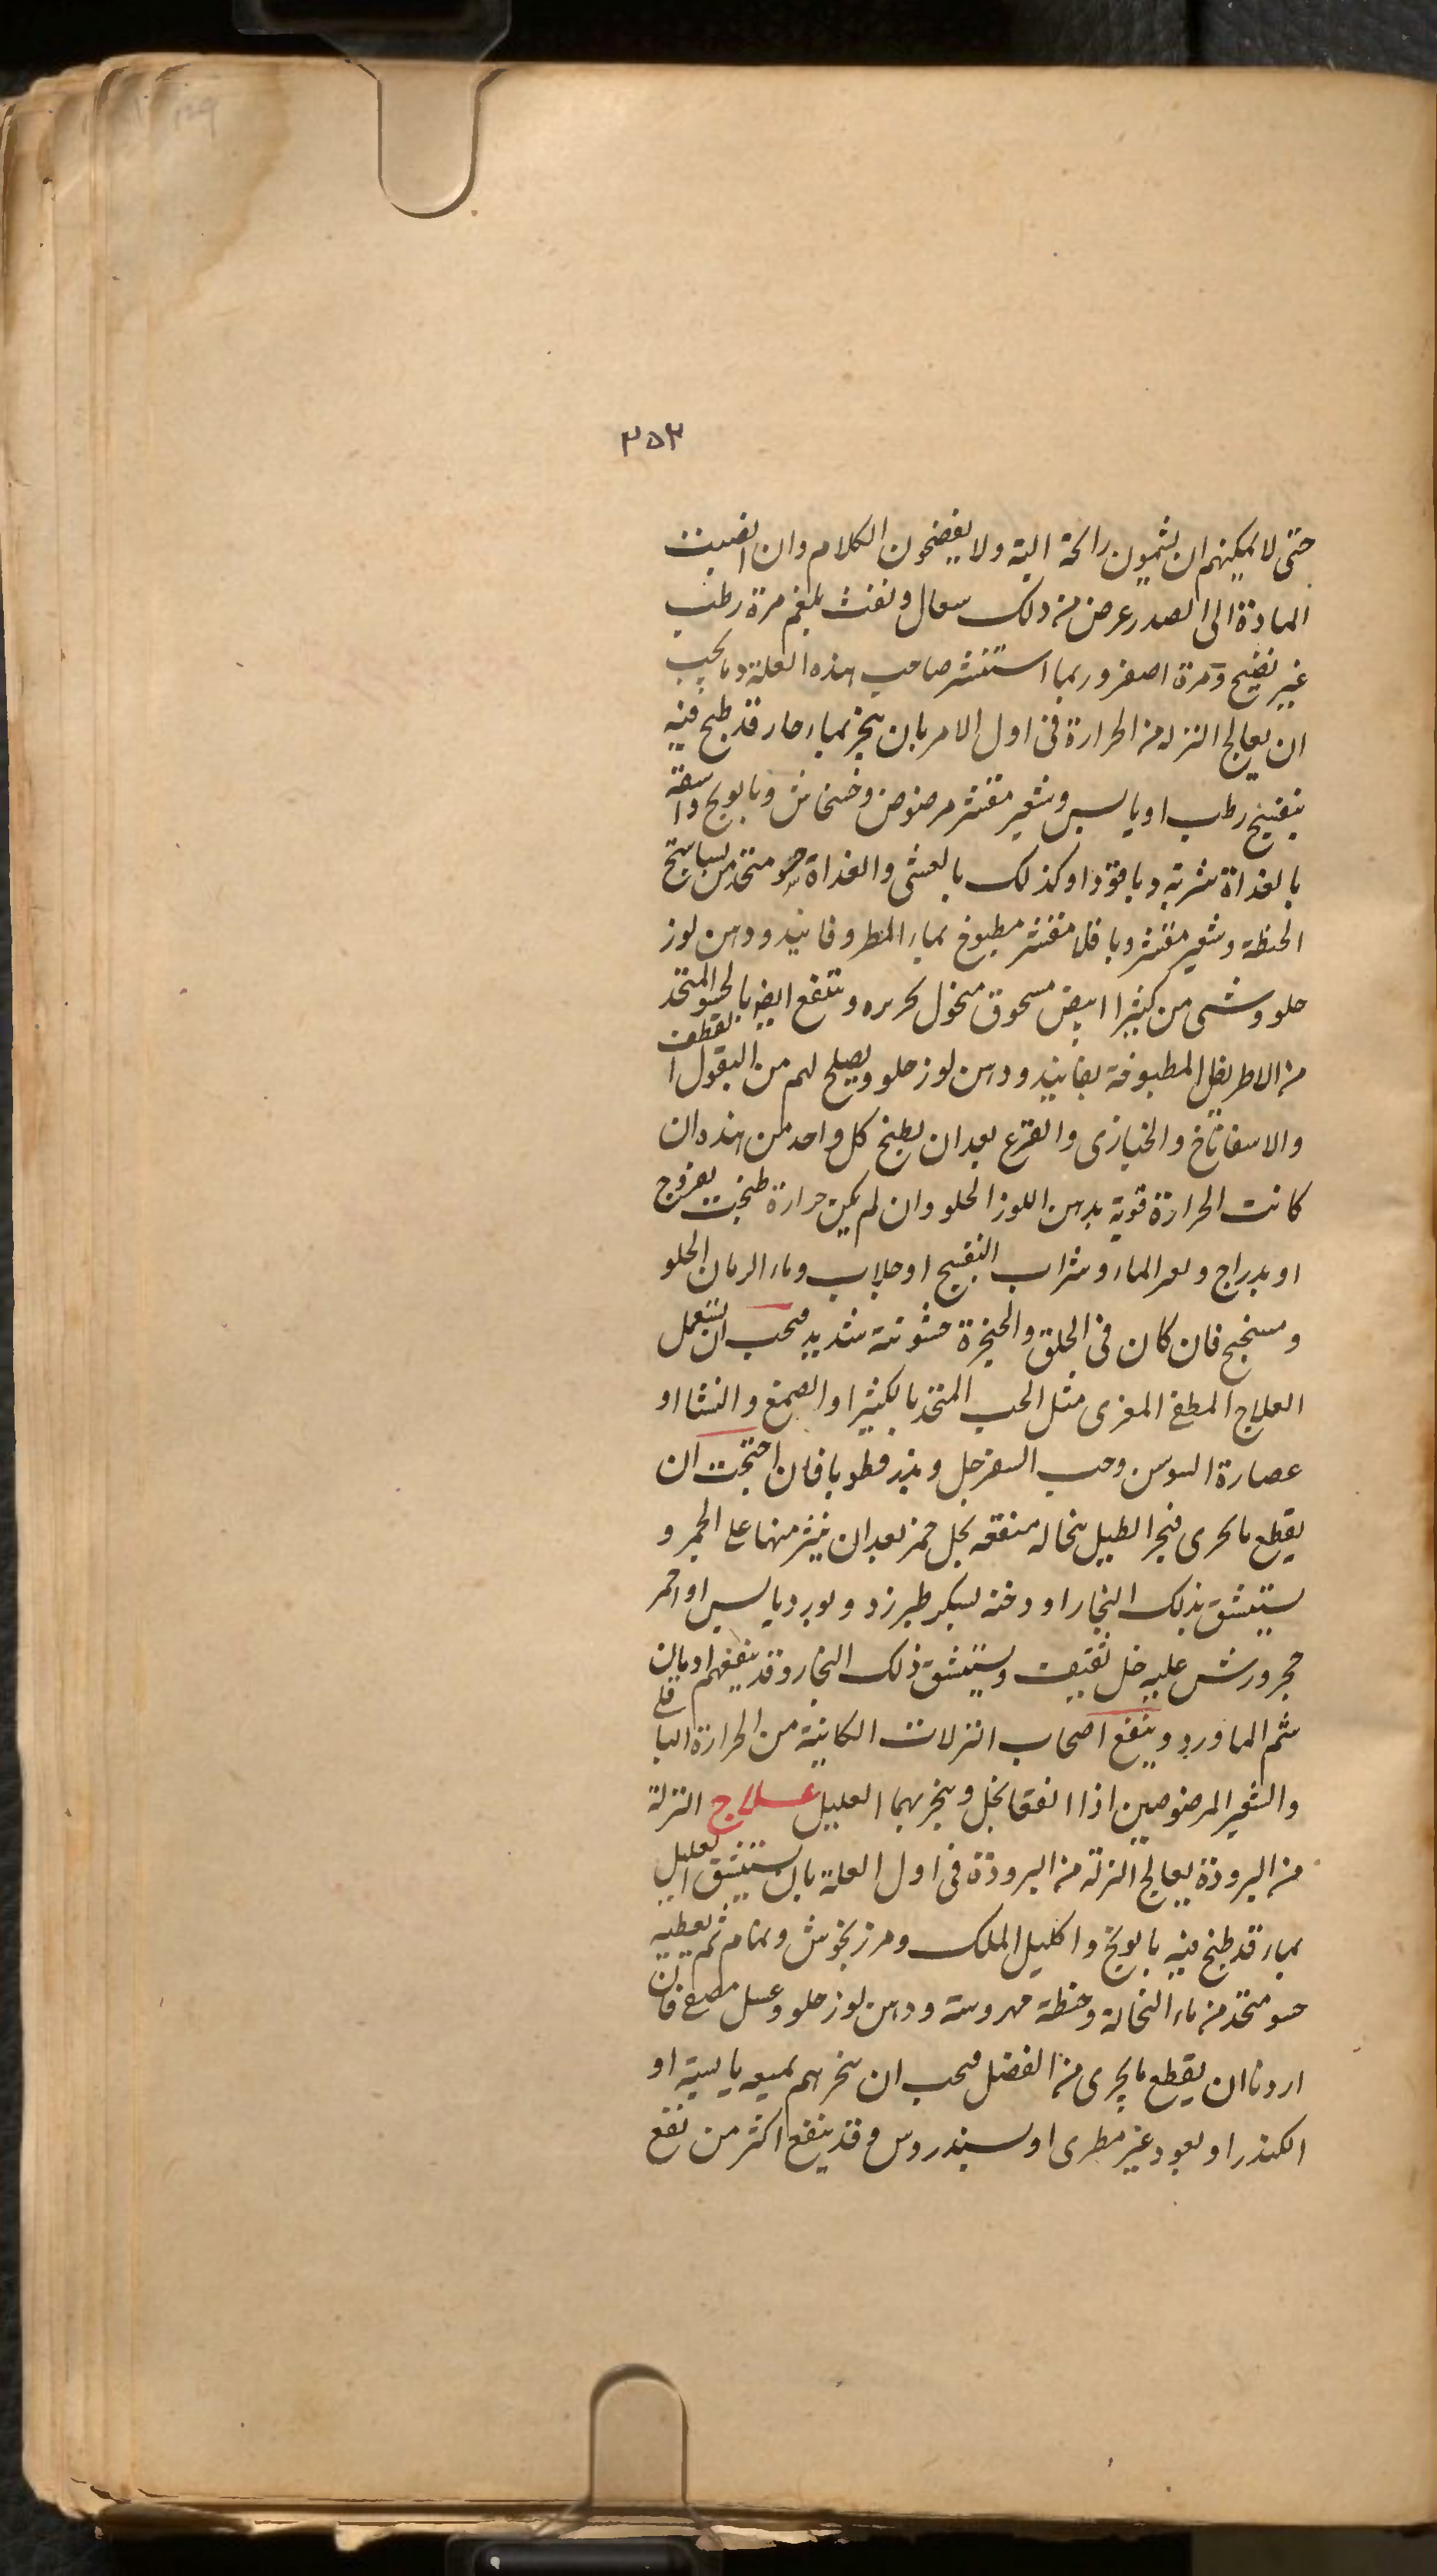 ٣٥٣
حتى لا يمكنهم ان يشمون رائحة البتة ولا يفضحون الكلام وان انصبت
المادة الى الصدر عرض من ذلك سعال ونفث بلغم مرة رطب
غير نضيج ومرة اصفر وربما استنشر صاحب هذه العلة دما يجب
ان يعالج النزلة من الحرارة فى اول الامر بان يبخر بماء حار قد طبخ فيه
بنفسج رطب او يابس وشعير مقشر مرضوض وخشخاش وبابونج واسقه
بالغداة شربة دياقوذا وكذلك بالعشى والغداة حسو متخذ من لباب
الحنطة وشعير مقشر وباقلا مقشر مطبوخ بماء المطر وفانيد ودهن لوز
حلو وشى من كثيرا ابيض مسحوق منخول بحريره وينتفع ايضا بالحسو المتخذ
من الاطريفل المطبوخة بفانيد ودهن لوز حلو ويصلح لهم من البقول القطف
والاسفاناخ والخبازى والقرع بعد ان يطبخ كل واحد من هذه ان
كانت الحرارة قوية بدهن اللوز الحلو وان لم يكن حرارة طبخت بفروج
او بدراج وبعد الماء وشراب البنفسج او جلاب وماء الرمان الحلو
وميبختج فان كان فى الحلق والحنجرة خشونة شديد فيجب ان يستعمل
العلاج المطفى المغرى مثل الحب المتخذ بالكثيرا والصمغ والنشا او
عصارة السوس وحب السفرجل وبذر قطونا فان احتجت ان
يقطع ما يجرى فبخر العليل بنخالة منقعه بخل خمر بعد ان ينثر منها على الجمر و
يستنشق بذلك البخار او دخنه بسكر طبرزد وبورد يابس او احمر
حجر ورش عليه خل ثقيف ويستنشق ذلك البخار وقد ينفعهم ادمان
شم الماورد وينفع اصحاب النزلات الكائنة من الحرارة الباقلى
والشعير المرضوضين اذا انقعا بخل وبخر بهما العليل علاج النزلة
من البرودة يعالج النزلة من البرودة فى اول العلة بان يستنشق العليل
بماء قد طبخ فيه بابونج واكليل الملك ومرزنجوش ونمام ثم يعطيه
حسو متخذ من ماء النخالة وحنطة مهروسة ودهن لوز حلو وعسل مصفى فان
اردنا ان يقطع ما يجرى من الفضل فيجب ان يبخرهم بميعه يابسة او
الكندر او بعود غير مطرى او بسندروس وقد ينفع اكثر من نفع